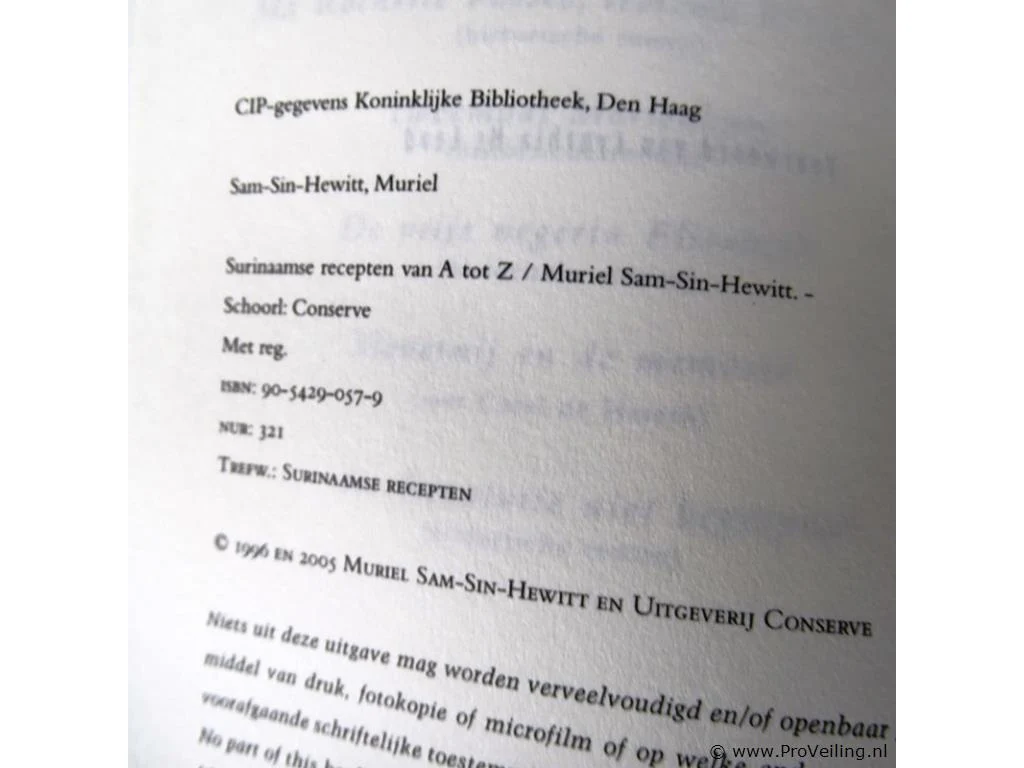 CIP-gegevens Koninklijke Bibliotheek, Den Haag
Sam-Sin-Hewitt, Muriel
Surinaamse recepten van A tot Z / Muriel Sam-Sin-Hewitt. -
Schoorl: Conserve
Met reg.
ISBN: 90-5429-057-9
NUR: 321
TREFW.: SURINAAMSE RECEPTEN
© 1996 EN 2005 MURIEL SAM-SIN-HEWITT EN UITGEVERIJ CONSERVE
Niets uit deze uitgave mag worden verveelvoudigd en/of openbaar
middel van druk, fotokopie of microfilm of op welke
voorafgaande schriftelijke
No part of this
© www.ProVeiling.nl